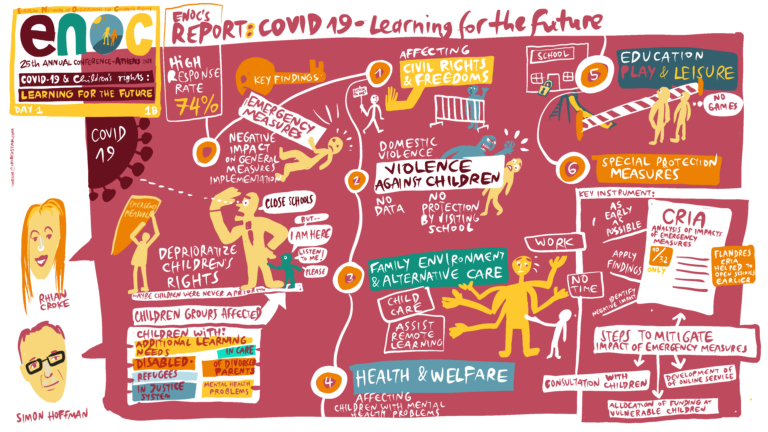 enoc
25th ANNUAL CONFERENCE • ATHENS 2021
COVID-19 & Children's rights:
LEARNING FOR THE FUTURE
DAY 1
1B
ENOC's
REPORT: COVID 19 - Learning for the Future
HIGH
RESPONSE
RATE
74%
COVID
19
RHIAN
CROKE
SIMON HOFFMAN
KEY FINDINGS
EMERGENCY
MEASURES
NEGATIVE
IMPACT
ON GENERAL
MEASURES
IMPLEMENTATION
EMERGENCY
MEASURES
DEPRIORATIZE
CHILDREN'S
RIGHTS
CLOSE SCHOOLS
BUT...
I AM HERE
LISTEN
TO ME!
PLEASE
MAYBE CHILDREN WERE NEVER A PRIORITY
CHILDREN GROUPS AFFECTED
CHILDREN WITH:
ADDITIONAL LEARNING
NEEDS
IN CARE
DISABLED
OF DIVORCED
PARENTS
REFUGEES
IN JUSTICE
SYSTEM
MENTAL HEALTH
PROBLEMS
1
AFFECTING
CIVIL RIGHTS
& FREEDOMS
2
DOMESTIC
VIOLENCE
VIOLENCE
AGAINST CHILDREN
NO
DATA
NO
PROTECTION
BY VISITING
SCHOOL
3
FAMILY ENVIRONMENT
& ALTERNATIVE CARE
WORK
NO
TIME
CHILD
CARE
ASSIST
REMOTE
LEARNING
4
HEALTH & WELFARE
AFFECTING
CHILDREN WITH MENTAL
HEALTH PROBLEMS
SCHOOL
5
EDUCATION
PLAY & LEISURE
NO
GAMES
6
SPECIAL PROTECTION
MEASURES
KEY INSTRUMENT:
AS
EARLY
AS
POSSIBLE
APPLY
FINDINGS
IDENTIFY
NEGATIVE IMPACT
CRIA
ANALYSIS OF IMPACTS
OF EMERGENCY
MEASURES
10/32
ONLY
FLANDRES
CRIA
HELPED TO
OPEN SCHOOLS
EARLIER
STEPS TO MITIGATE
IMPACT OF EMERGENCY MEASURES
CONSULTATION
WITH CHILDREN
DEVELOPMENT OF
OF ONLINE SERVICE
ALLOCATION OF FUNDING AT
VULNERABLE CHILDREN